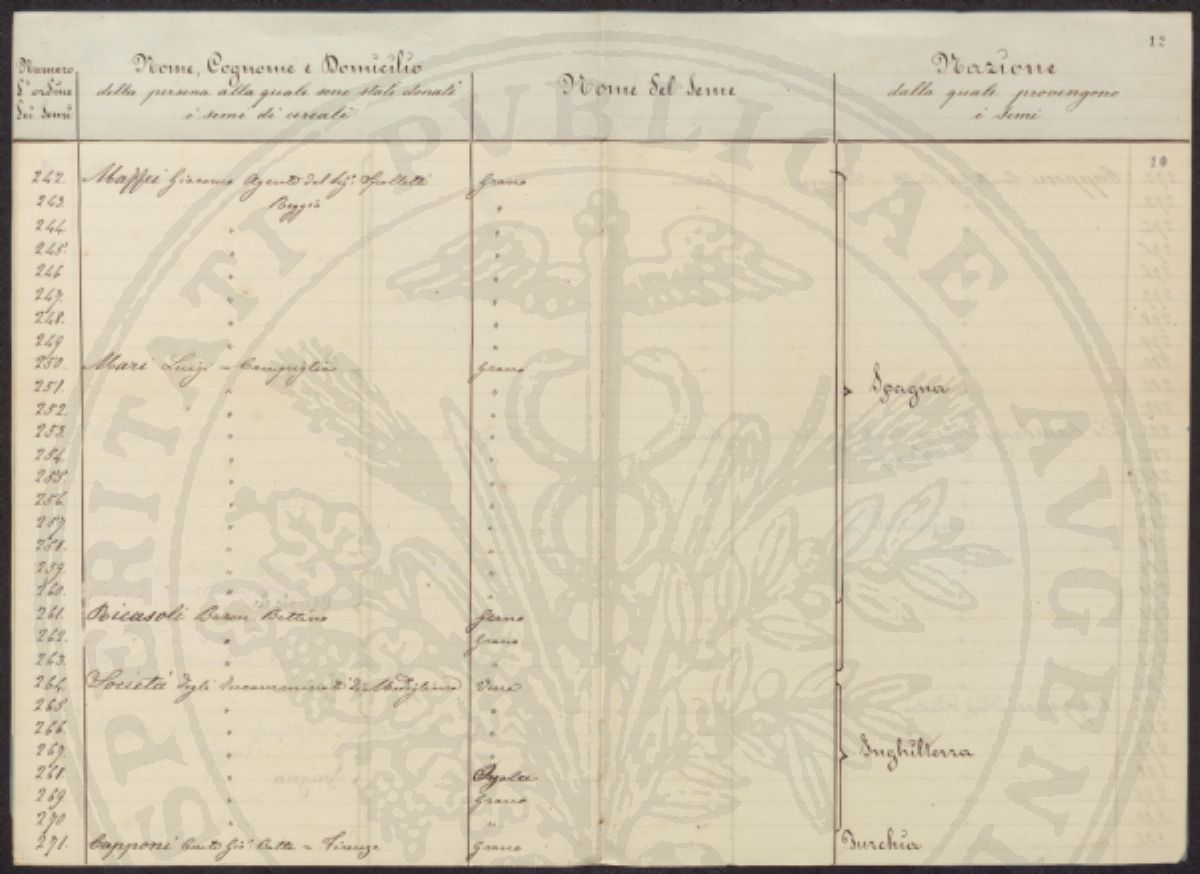 12
Numero d'ordine dei semi
Nome, Cognome e Domicilio
della persona alla quale sono stati donati
i semi di cereali
Nome del seme
Nazione
dalla quale provengono
i semi
10
242. Maffei Giacomo Agente del Sig.r Spalletti Grano
243. Reggio "
244. " "
245. " "
246. " "
247. " "
248. " "
249. " "
250. Mari Luigi - Campiglia Grano
251. " " Spagna
252. " "
253. " "
254. " "
255. " "
256. " "
257. " "
258. " "
259. " "
260. " "
261. Ricasoli Baron Bettino Grano
262. " Grano
263. " "
264. Società degli di Modigliana
265. " "
266. " "
267. " " Inghilterra
268. "
269. " Grano
270. " "
271. Capponi Conte Gio. Batta - Firenze Grano Turchia
PUBLICAE